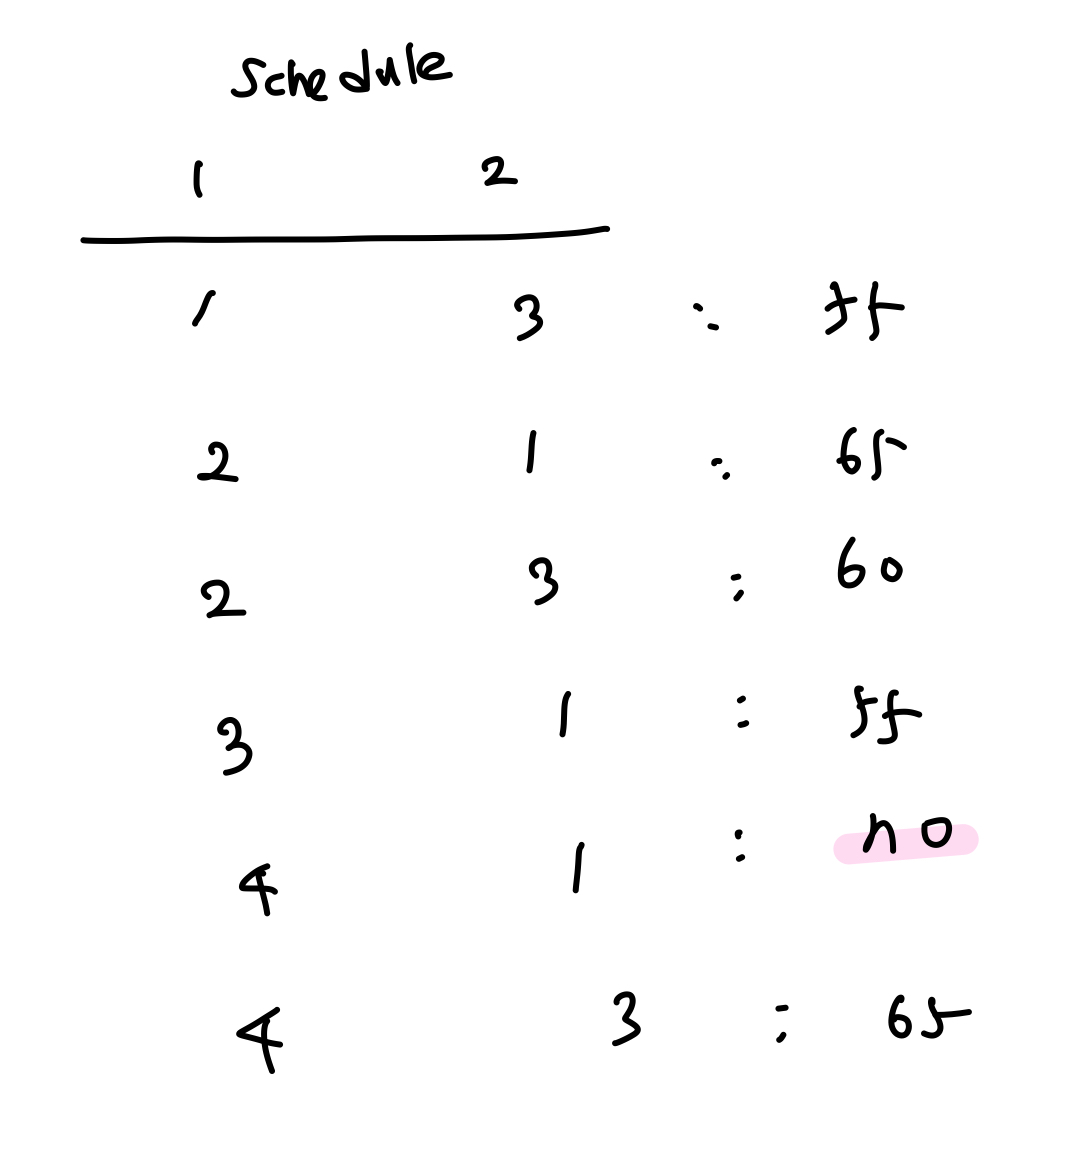 Schedule
1 2
1 3 : 55
2 1 : 65
2 3 : 60
3 1 : 55
4 1 : no
4 3 : 65